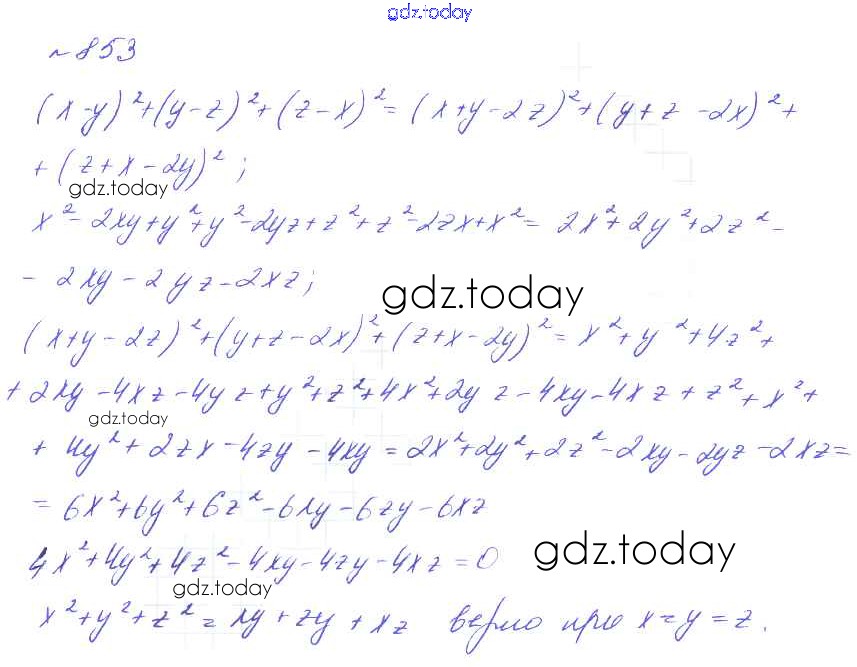 gdz.today
№853
(x-y)²+(y-z)²+(z-x)²=(x+y-2z)²+(y+z-2x)²+
+(z+x-2y)²;
gdz.today
x²-2xy+y²+y²-2yz+z²+z²-2zx+x²=2x²+2y²+2z²-
-2xy-2yz-2xz;
gdz.today
(x+y-2z)²+(y+z-2x)²+(z+x-2y)²=x²+y²+4z²+
+2xy-4xz-4yz+y²+z²+4x²+2yz-4xy-4xz+z²+x²+
gdz.today
+4y²+2zx-4zy-4xy=2x²+2y²+2z²-2xy-2yz-2xz=
=6x²+6y²+6z²-6xy-6zy-6xz
4x²+4y²+4z²-4xy-4zy-4xz=0
gdz.today
gdz.today
x²+y²+z²=xy+zy+xz верно при x=y=z.